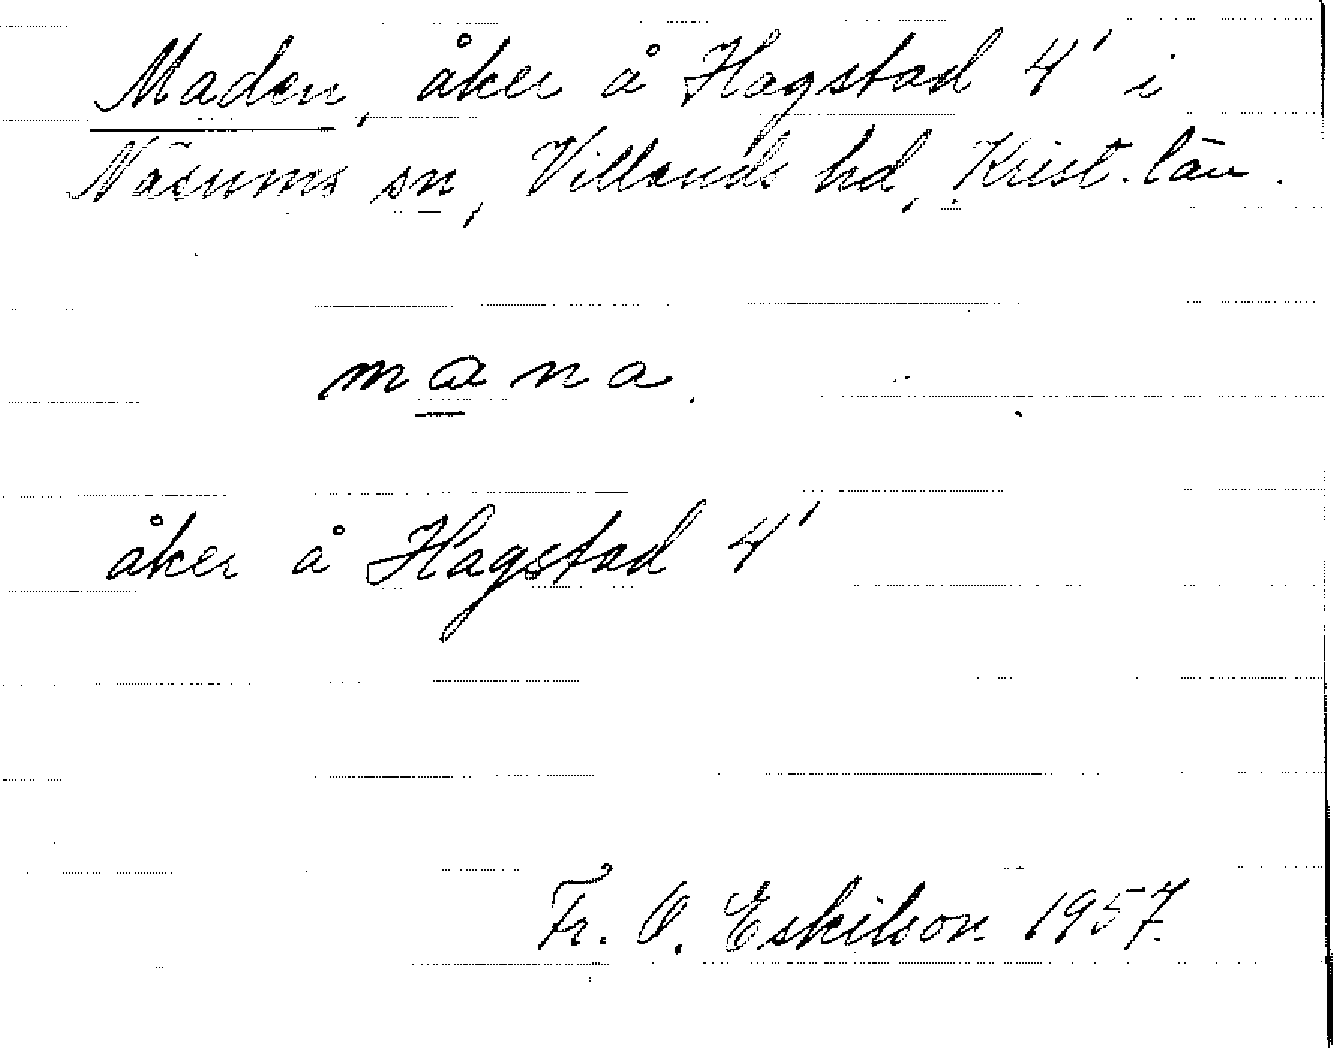 Maden, åker å Hagstad 4' i
Näsums sn, Villands hd, Krist. län.
mana.
åker å Hagstad 4'
Fr. O. Eskilson 1957.